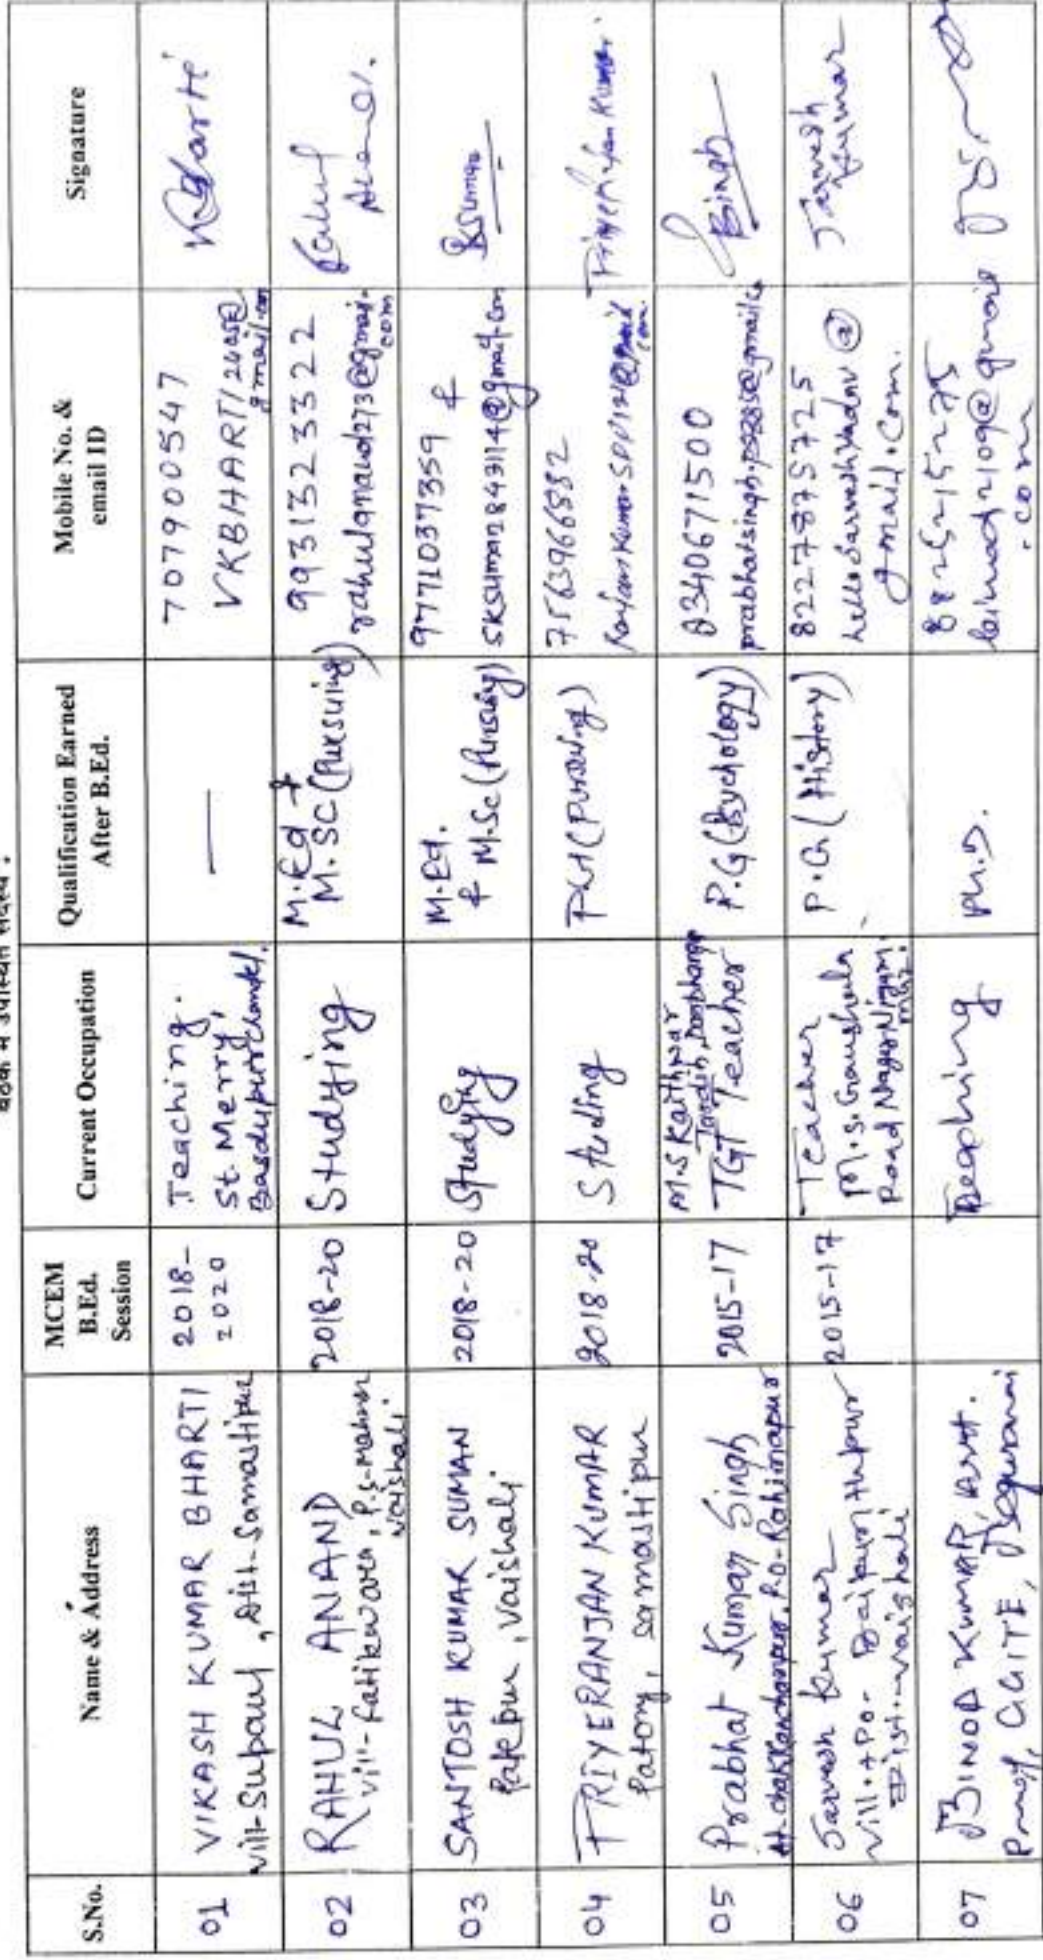 बैठक में उपस्थित सदस्य :
S.No.
Name & Address
MCEM
B.Ed.
Session
Current Occupation
Qualification Earned
After B.Ed.
Mobile No. &
email ID
Signature
01
VIKASH KUMAR BHARTI
Vill-Supaul, Dist-Samastipur
2018-
2020
Teaching.
St. Merry,
Basudevpur Chandel.
—
7079000547
VKBHARTI2605@
gmail.com
02
RAHUL ANAND
Vill- Fatikwara, P.S-Mahnar
Vaishali
2018-20
Studying
M.Ed &
M.SC (Pursuing)
9931323322
rahulanand273@gmail.
com
Rahul
Anand.
03
SANTOSH KUMAR SUMAN
Patepur, Vaishali
2018-20
Studying
M.Ed.
& M.Sc (Pursuing)
9771037359 &
SKSuman2843114@gmail.com
Suman
04
PRIYERANJAN KUMAR
Patory, samastipur
2018-20
Studing
(Pursuing)
7563966532
Priyeranjan Kumar
05
Prabhat Kumar Singh
At. Chakkanchanpur, Po-Rahimapur
2015-17
M.S Kaithwar
Tardih, Darbhanga
TGT Teacher
P.G (Psychology)
8340671500
Singh
06
Sarvesh Kumar
Vill.+Po-
Dist.-vaishali
2015-17
Teacher
M.S. Gaushala
Road Nagar Nigam
P.G (History)
8227875725
hellosarveshyadav@
gmail.com.
Sarvesh
Kumar
07
BINOD KUMAR, Asst.
Prof, CCITE, Begusarai
Teaching
Ph.D.
.com